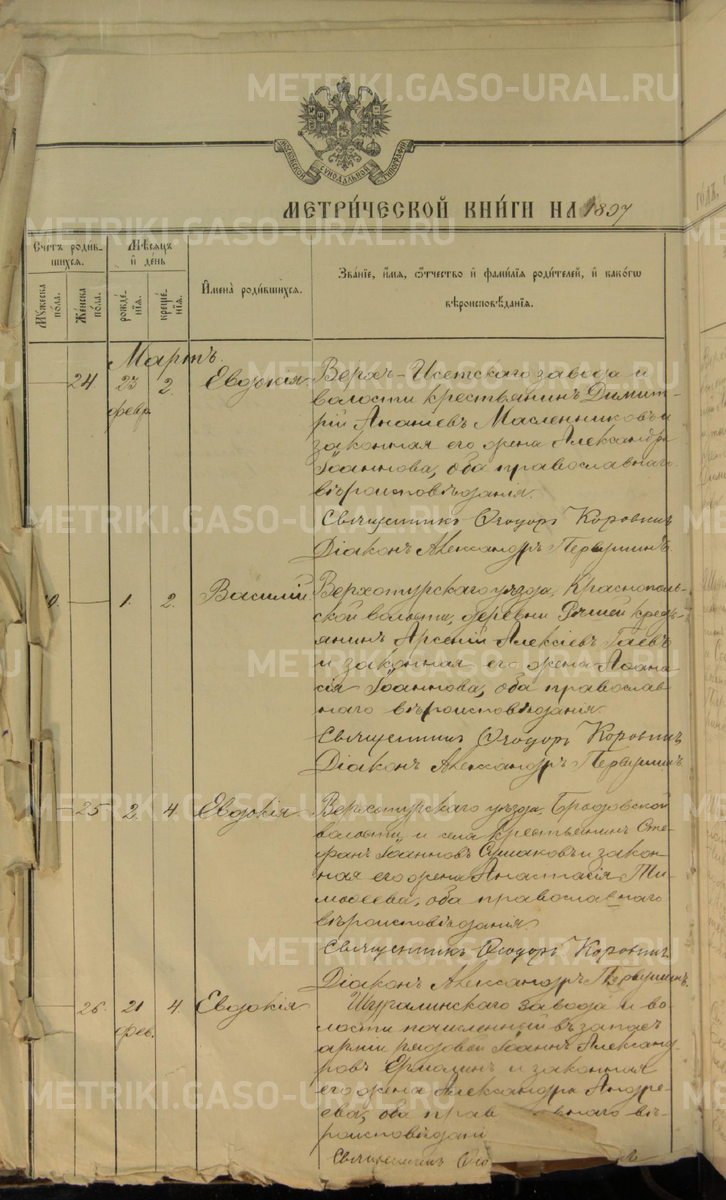 METRIKI.GASO-URAL.RU METRIKI.GASO-URAL.RU
МОСКОВСКОЙ СѴНОДАЛЬНОЙ ТИПОГРАФІИ
МЕТРИ́ЧЕСКОЙ КНИ́ГИ НА 1897
Счетъ родив-
шихся.
Мужеска пола.
Женска пола.
Мѣсяцъ
и день
рожде-
нія.
креще-
нія.
Имена родившихся.
Званіе, имя, отчество и фамилія родителей, и какогѡ
вѣроисповѣданія.
Мартъ.
24 23 февр. 2. Евдокія.
Верхъ-Исетскаго завода и
волости крестьянинъ Димит-
рій Ананіевъ Масленниковъ и
законная его жена Александра
Іоаннова, оба православнаго
вѣроисповѣданія.
Священникъ Ѳеодоръ Коровинъ
Діаконъ Александръ Первушинъ
— 1. 2. Василій.
Верхотурскаго уѣзда, Краснополь-
ской волости, деревни кресть-
янинъ Арсеній Алексіевъ Гаевъ
и законная его жена Аѳана-
сія Іоаннова, оба православ-
наго вѣроисповѣданія.
Священникъ Ѳеодоръ Коровинъ
Діаконъ Александръ Первушинъ
— 25 2. 4. Евдокія
Верхотурскаго уѣзда, Бродовской
волости и села крестьянинъ Сте-
фанъ Іоанновъ и закон-
ная его жена Анастасія Ти-
моѳеева, оба православнаго
вѣроисповѣданія
Священникъ Ѳеодоръ Коровинъ
Діаконъ Александръ Первушинъ.
— 26. 21 фев. 4. Евдокія
Шуралинскаго завода и во-
лости, зачисленный въ запасъ
арміи рядовой Іоаннъ Александ-
ровъ Ермолинъ и законная
его жена Александра Андре-
ева, оба прав внаго вѣ-
роисповѣдані
Священникъ Ѳео